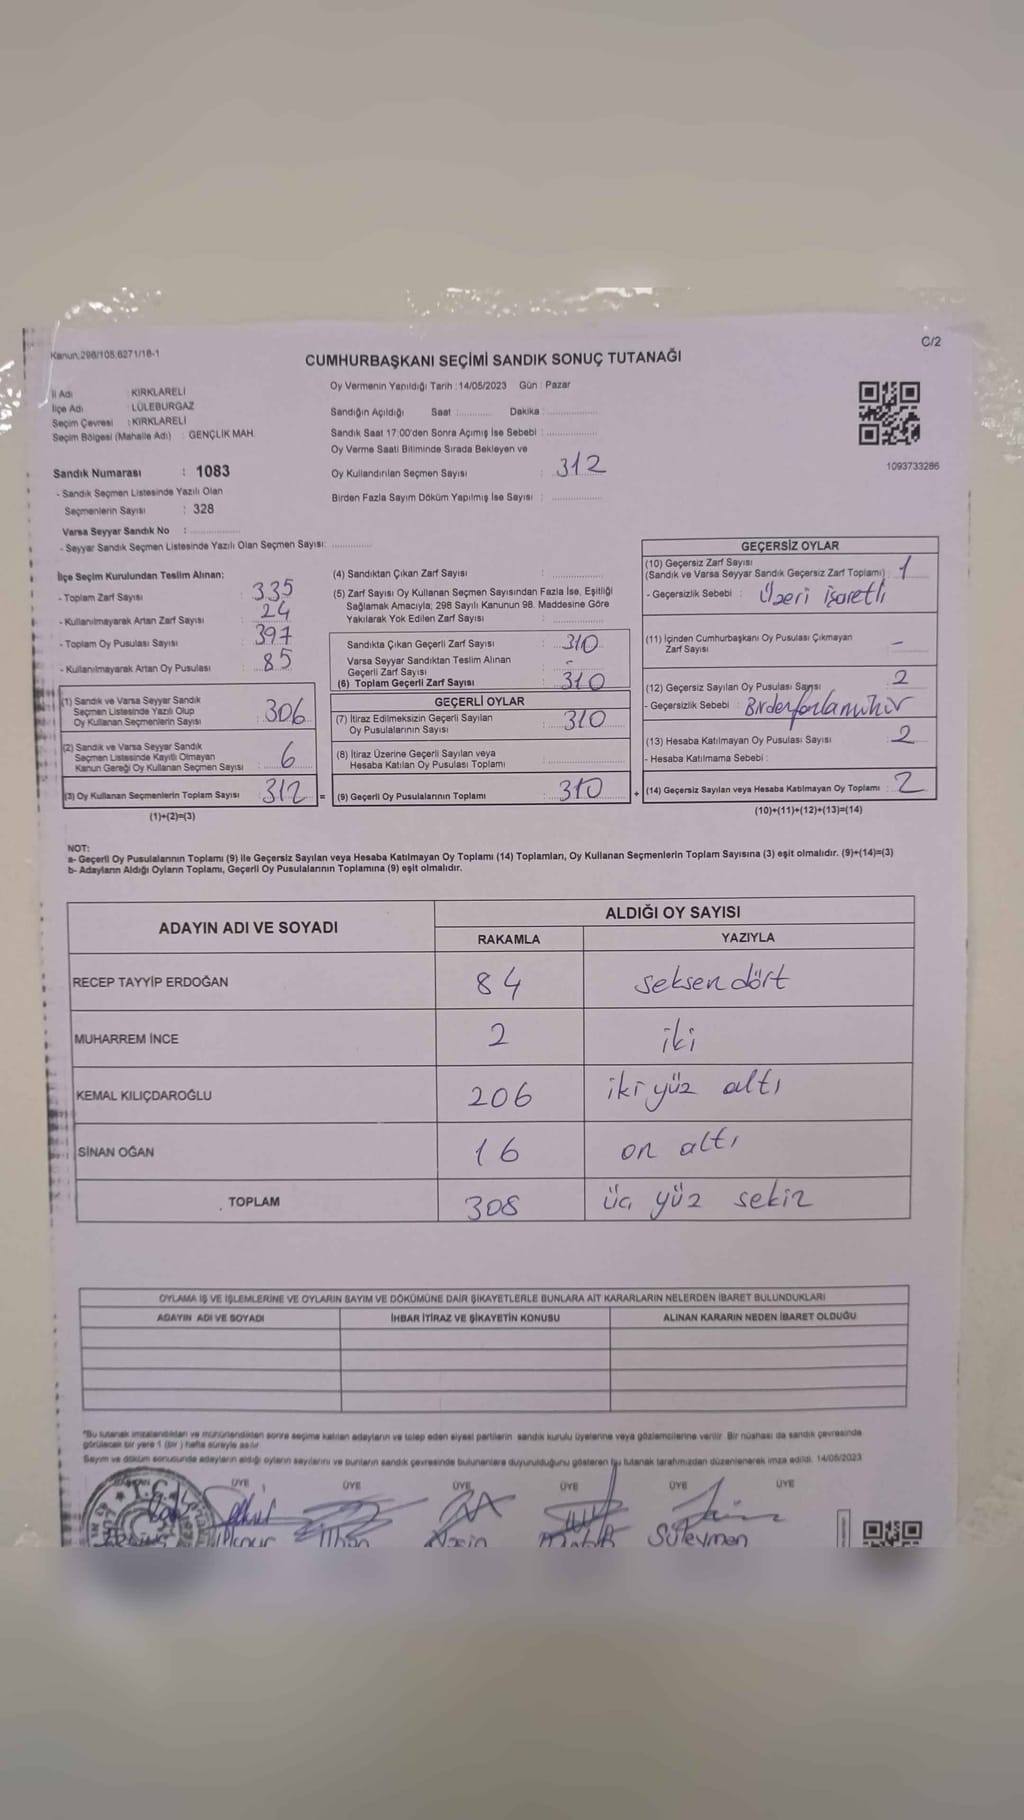 Kanun.298/105.6271/18-1
C/2
CUMHURBAŞKANI SEÇİMİ SANDIK SONUÇ TUTANAĞI
İl Adı : KIRKLARELİ
İlçe Adı : LÜLEBURGAZ
Seçim Çevresi : KIRKLARELİ
Seçim Bölgesi (Mahalle Adı) : GENÇLİK MAH.
Sandık Numarası : 1083
- Sandık Seçmen Listesinde Yazılı Olan
Seçmenlerin Sayısı : 328
Varsa Seyyar Sandık No : ..............
- Seyyar Sandık Seçmen Listesinde Yazılı Olan Seçmen Sayısı: ............
Oy Vermenin Yapıldığı Tarih : 14/05/2023 Gün : Pazar
Sandığın Açıldığı Saat :............ Dakika :................
Sandık Saat 17:00'den Sonra Açımış İse Sebebi : ................
Oy Verme Saati Bitiminde Sırada Bekleyen ve
Oy Kullandırılan Seçmen Sayısı : 312
Birden Fazla Sayım Döküm Yapılmış İse Sayısı : ................
1093733286
İlçe Seçim Kurulundan Teslim Alınan:
- Toplam Zarf Sayısı : 335
- Kullanılmayarak Artan Zarf Sayısı : 24
- Toplam Oy Pusulası Sayısı : 397
- Kullanılmayarak Artan Oy Pusulası : 85
(1) Sandık ve Varsa Seyyar Sandık
Seçmen Listesinde Yazılı Olup
Oy Kullanan Seçmenlerin Sayısı : 306
(2) Sandık ve Varsa Seyyar Sandık
Seçmen Listesinde Kayıtlı Olmayan
Kanun Gereği Oy Kullanan Seçmen Sayısı : 6
(3) Oy Kullanan Seçmenlerin Toplam Sayısı : 312 =
(1)+(2)=(3)
(4) Sandıktan Çıkan Zarf Sayısı : ................
(5) Zarf Sayısı Oy Kullanan Seçmen Sayısından Fazla İse, Eşitliği
Sağlamak Amacıyla; 298 Sayılı Kanunun 98. Maddesine Göre
Yakılarak Yok Edilen Zarf Sayısı : ................
Sandıkta Çıkan Geçerli Zarf Sayısı : 310
Varsa Seyyar Sandıktan Teslim Alınan
Geçerli Zarf Sayısı : -
(6) Toplam Geçerli Zarf Sayısı : 310
GEÇERLİ OYLAR
(7) İtiraz Edilmeksizin Geçerli Sayılan
Oy Pusulalarının Sayısı : 310
(8) İtiraz Üzerine Geçerli Sayılan veya
Hesaba Katılan Oy Pusulası Toplamı : ................
(9) Geçerli Oy Pusulalarının Toplamı : 310 +
GEÇERSİZ OYLAR
(10) Geçersiz Zarf Sayısı
(Sandık ve Varsa Seyyar Sandık Geçersiz Zarf Toplamı) : 1
- Geçersizlik Sebebi : Üzeri işaretli
(11) İçinden Cumhurbaşkanı Oy Pusulası Çıkmayan
Zarf Sayısı : -
(12) Geçersiz Sayılan Oy Pusulası Sayısı : 2
- Geçersizlik Sebebi : Birden fazla mühür
(13) Hesaba Katılmayan Oy Pusulası Sayısı : 2
- Hesaba Katılmama Sebebi :
(14) Geçersiz Sayılan veya Hesaba Katılmayan Oy Toplamı : 2
(10)+(11)+(12)+(13)=(14)
NOT:
a- Geçerli Oy Pusulalarının Toplamı (9) ile Geçersiz Sayılan veya Hesaba Katılmayan Oy Toplamı (14) Toplamları, Oy Kullanan Seçmenlerin Toplam Sayısına (3) eşit olmalıdır. (9)+(14)=(3)
b- Adayların Aldığı Oyların Toplamı, Geçerli Oy Pusulalarının Toplamına (9) eşit olmalıdır.
ADAYIN ADI VE SOYADI ALDIĞI OY SAYISI
RAKAMLA YAZIYLA
RECEP TAYYİP ERDOĞAN 84 seksen dört
MUHARREM İNCE 2 iki
KEMAL KILIÇDAROĞLU 206 iki yüz altı
SİNAN OĞAN 16 on altı
TOPLAM 308 üç yüz sekiz
OYLAMA İŞ VE İŞLEMLERİNE VE OYLARIN SAYIM VE DÖKÜMÜNE DAİR ŞİKAYETLERLE BUNLARA AİT KARARLARIN NELERDEN İBARET BULUNDUKLARI
ADAYIN ADI VE SOYADI İHBAR İTİRAZ VE ŞİKAYETİN KONUSU ALINAN KARARIN NEDEN İBARET OLDUĞU
*Bu tutanak imzalandıktan ve mühürlendikten sonra seçime katılan adayların ve talep eden siyasi partilerin sandık kurulu üyelerine veya gözlemcilerine verilir. Bir nüshası da sandık çevresinde
görülecek bir yere 1 (bir) hafta süreyle asılır.
Sayım ve döküm sonucunda adayların aldığı oyların sayılarını ve bunların sandık çevresinde bulunanlara duyurulduğunu gösteren bu tutanak tarafımızdan düzenlenerek imza edildi. 14/05/2023
ÜYE ÜYE ÜYE ÜYE ÜYE ÜYE
Süleyman